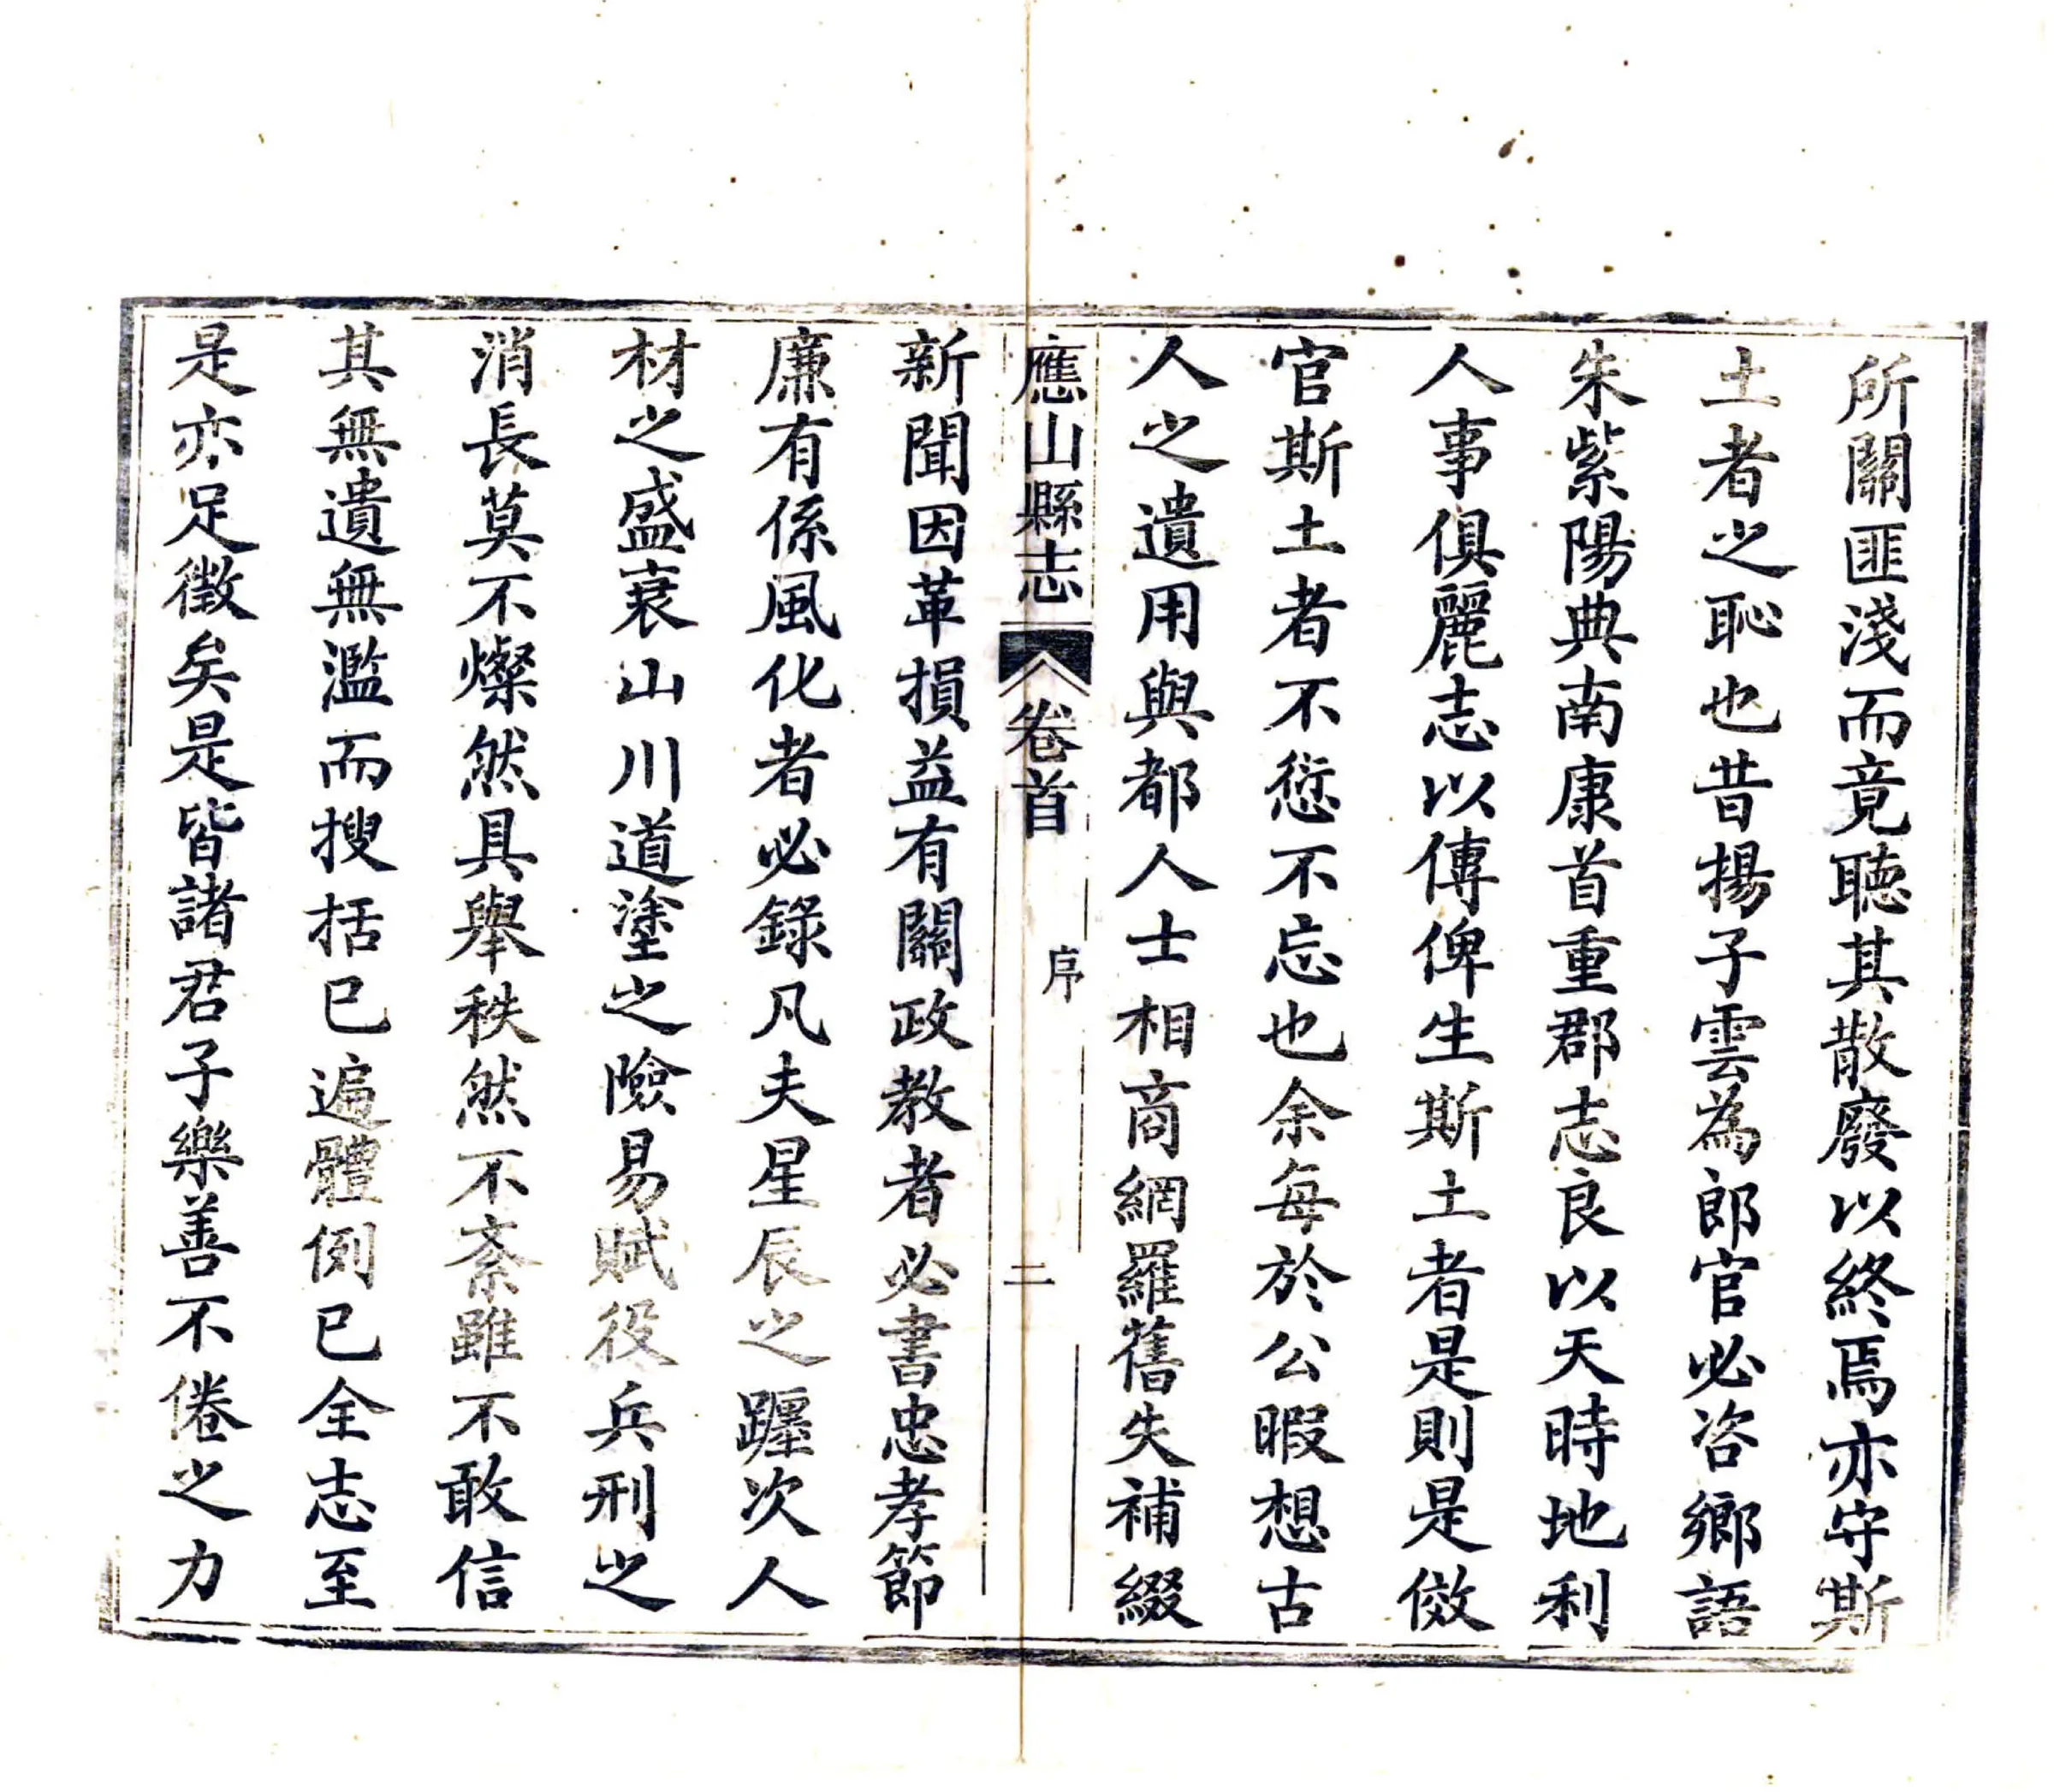 所關匪淺而竟聽其散廢以終焉亦守斯
土者之恥也昔揚子雲為郎官必咨鄉語
朱紫陽典南康首重郡志良以天時地利
人事俱麗志以傳俾生斯土者是則是傚
官斯土者不愆不忘也余每於公暇想古
人之遺用與都人士相商網羅舊失補綴
應山縣志 卷首 序 二
新聞因革損益有關政教者必書忠孝節
廉有係風化者必錄凡夫星辰之躔次人
材之盛衰山川道塗之險易賦役兵刑之
消長莫不燦然具舉秩然不紊雖不敢信
其無遺無濫而搜括已遍體例已全志至
是亦足徵矣是皆諸君子樂善不倦之力